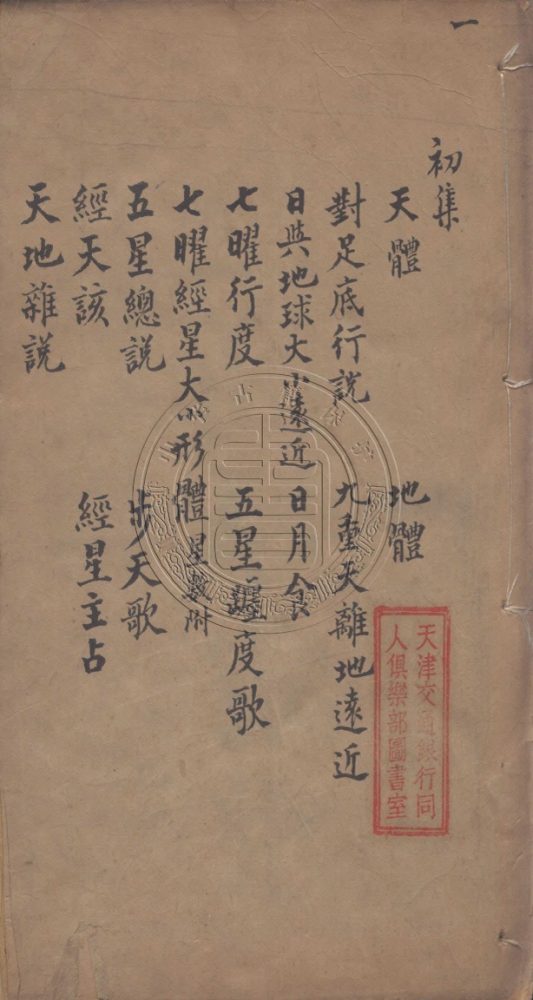 一
初集
天體 地體
對足底行説 九重天離地遠近
日與地球大小遠近 日月食
七曜行度 五星躔度歌
七曜經星大小形體 星數附
五星總説 步天歌
經天該 經星主占
天地雜説
天津交通銀行同
人俱樂部圖書室